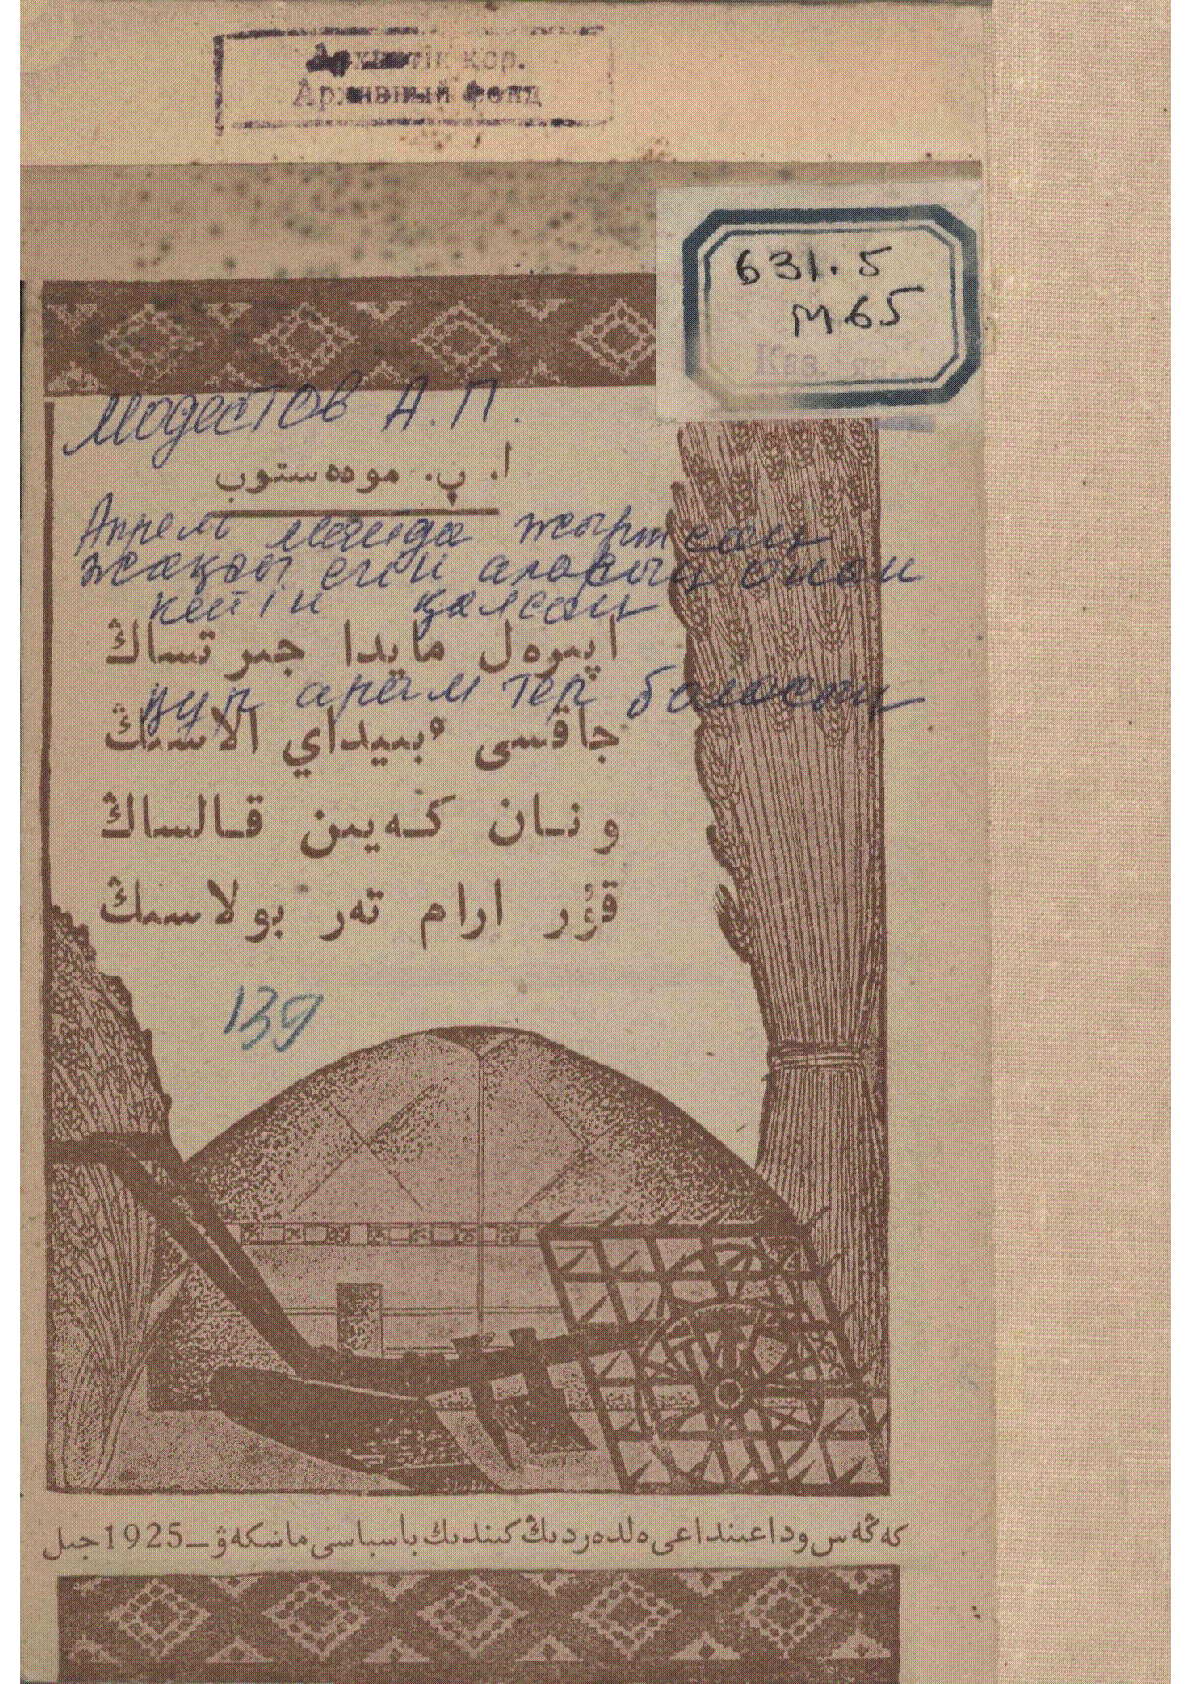 Архивтік қор.
Архивный фонд
631.5
М65
Каз. яз.
Модестов А.П.
ا. پ. مودەستوب
Апрель майда жыртсаң
жақсы егін аласың онан
кейін қалсаң
اپىرەل مايدا جىرتساڭ
құр арам тер боласың
جاقسى ٴبيداي الاسىڭ
ونان كەيىن قالساڭ
قۇر ارام تەر بولاسىڭ
139
كەڭەس وداعىنداعى ەلدەردىڭ كىندىك باسپاسى ماسكەۋ ـ 1925 جىل